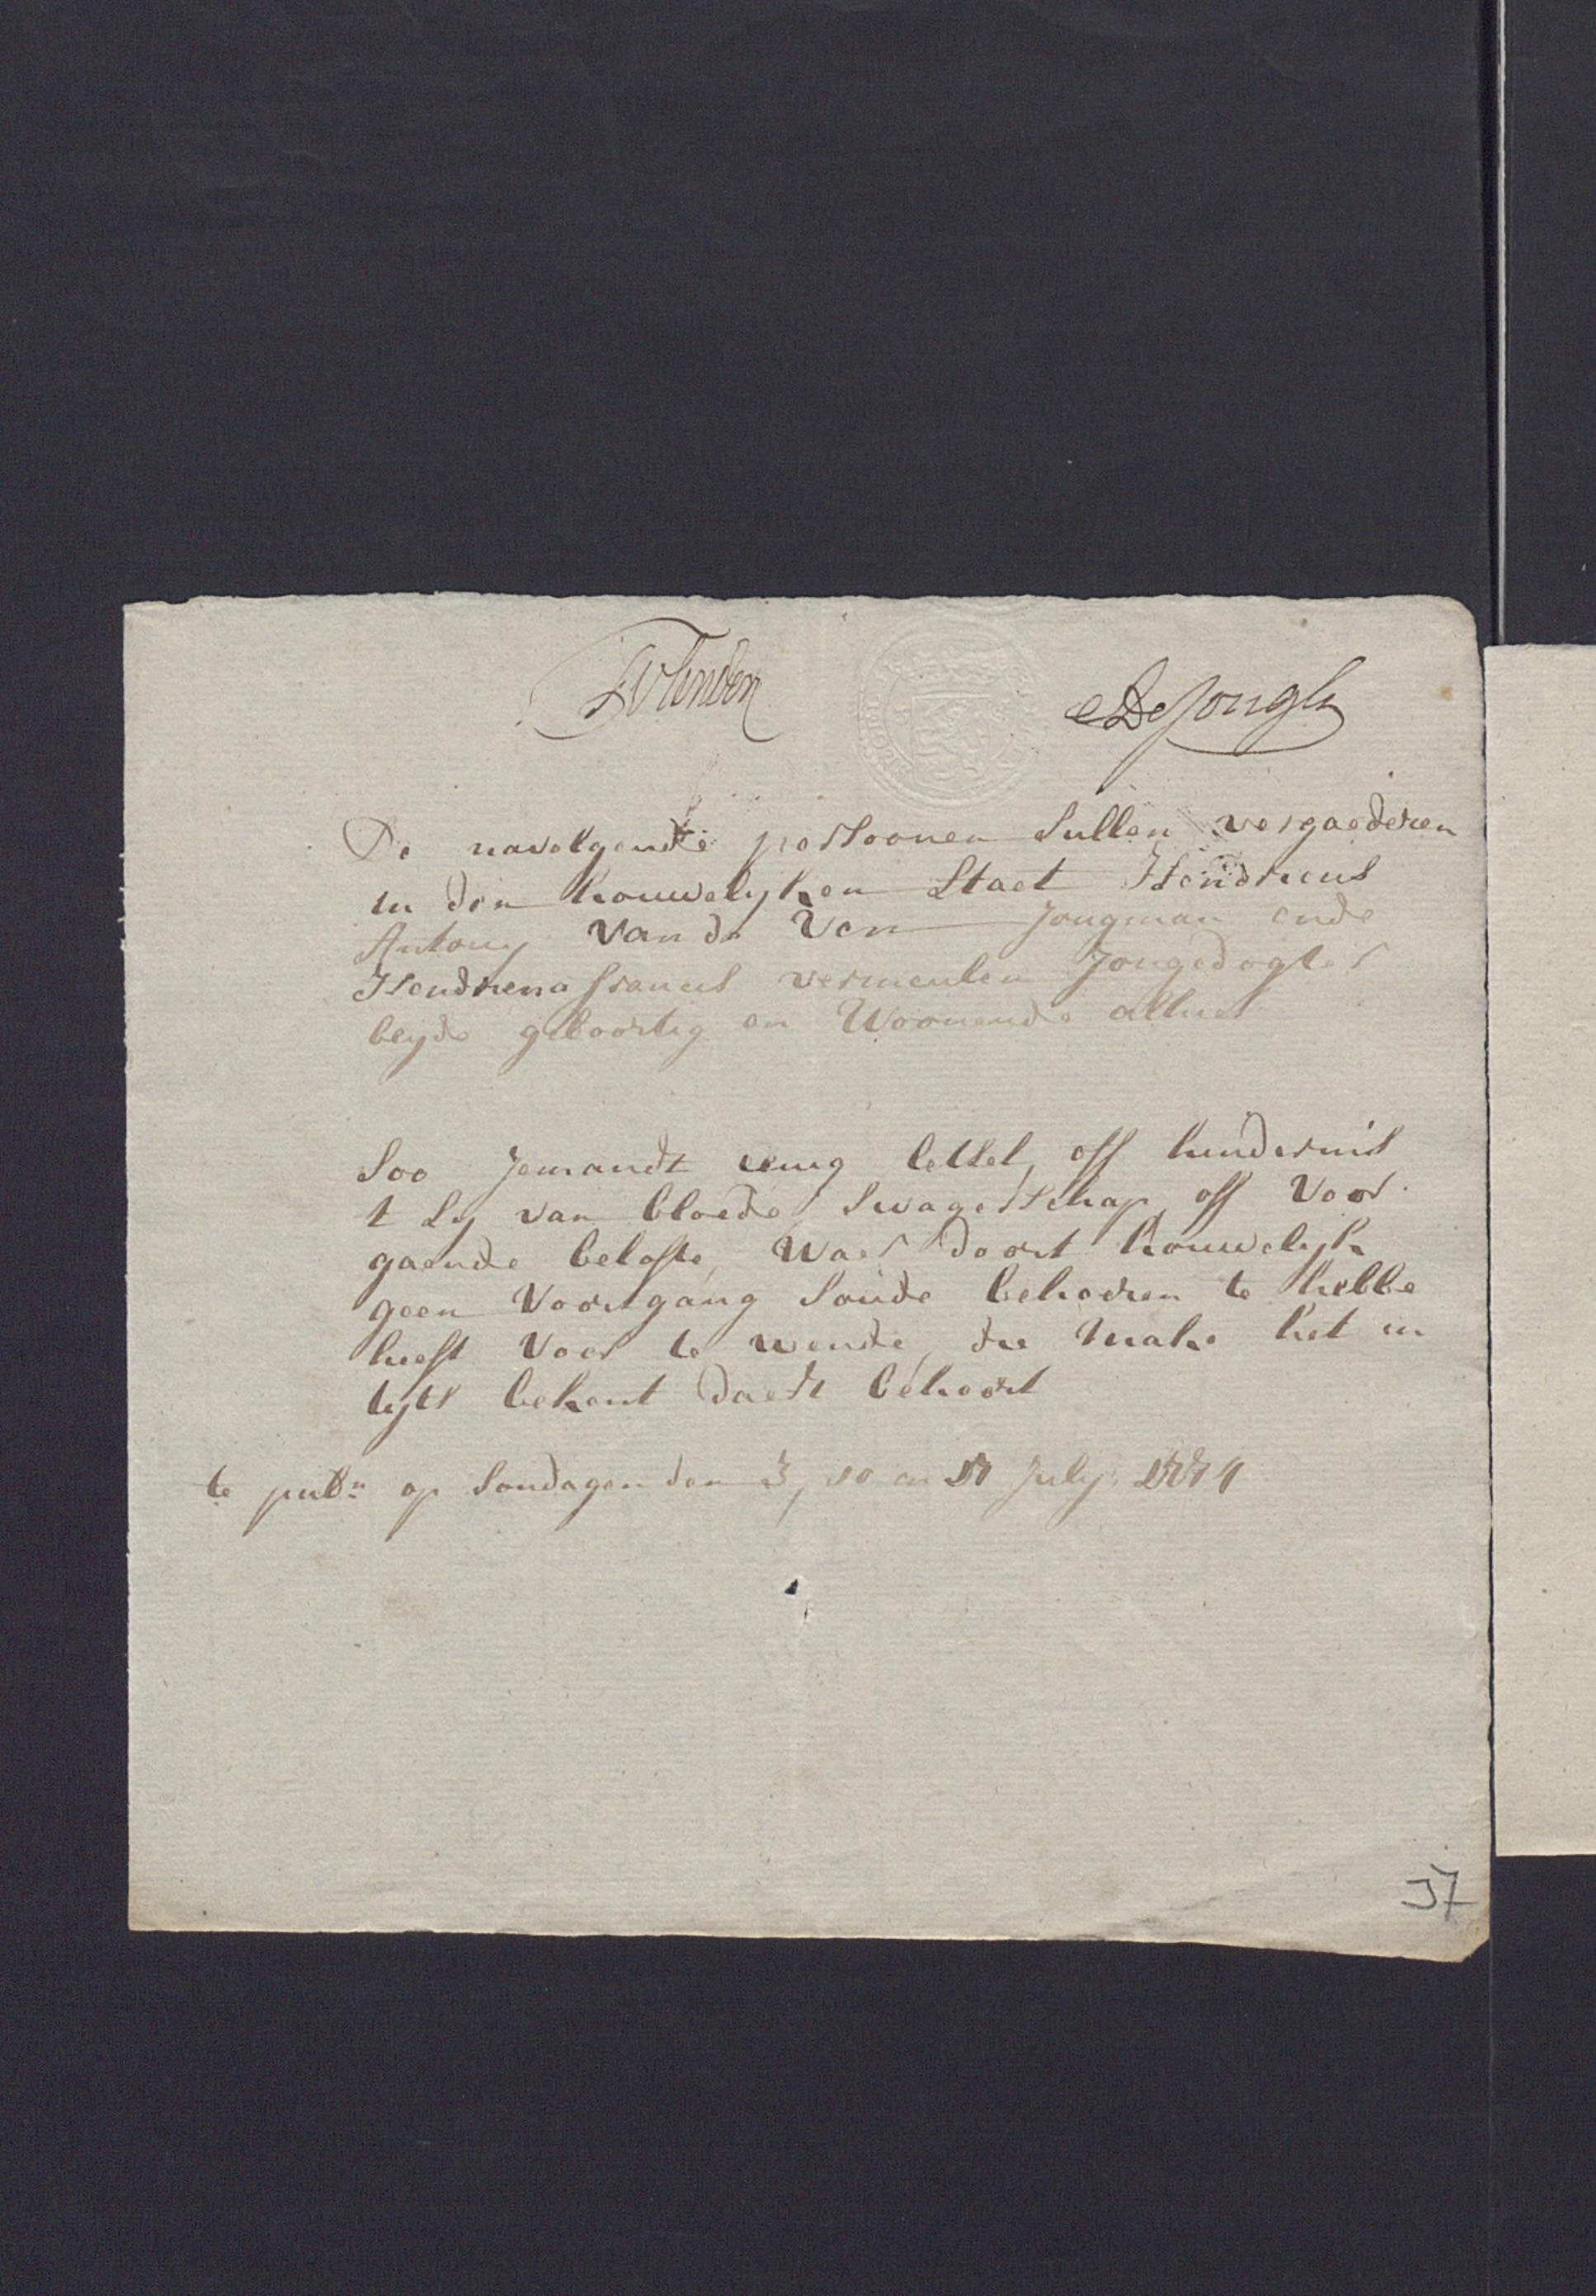 DeJongh
De navolgende persoonen sullen vergaederen
in den houwelyken Staet Hendricus
Antony van de Ven Jongman ende
Hendriena francis vermeulen Jongedogter
beyde geboortig en Woonende alhier
Soo Jemandt eenig letsel, off hindernis
t sy van bloede, swagerschap, off voor
gaende belofte, waer doort houwelyk
geen voortgang soude behooren te hebbe
heeft voor te wende, die make het in
tyts bekent daert behoort
te publn op Sondagen den 3, 10 en 17 July
37